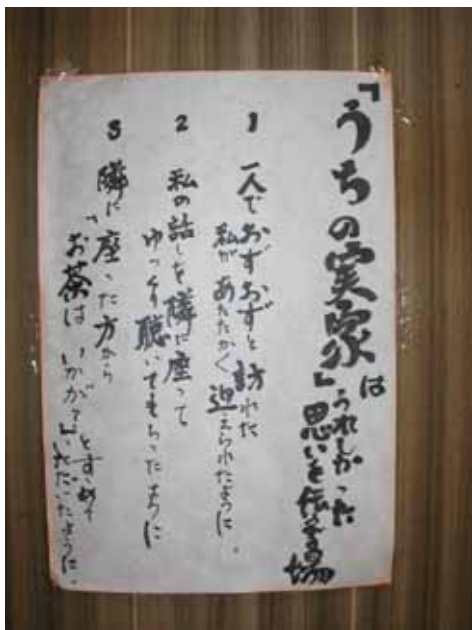 『うちの実家』は
うれしかった
思いを伝える場
1 一人でおずおずと訪れた
私があたたかく迎えられたように。
2 私の話しを隣に座って
ゆっくり聴いてもらったように
3 隣に座った方から
「お茶はいかが?」とすすめて
いただいたように。